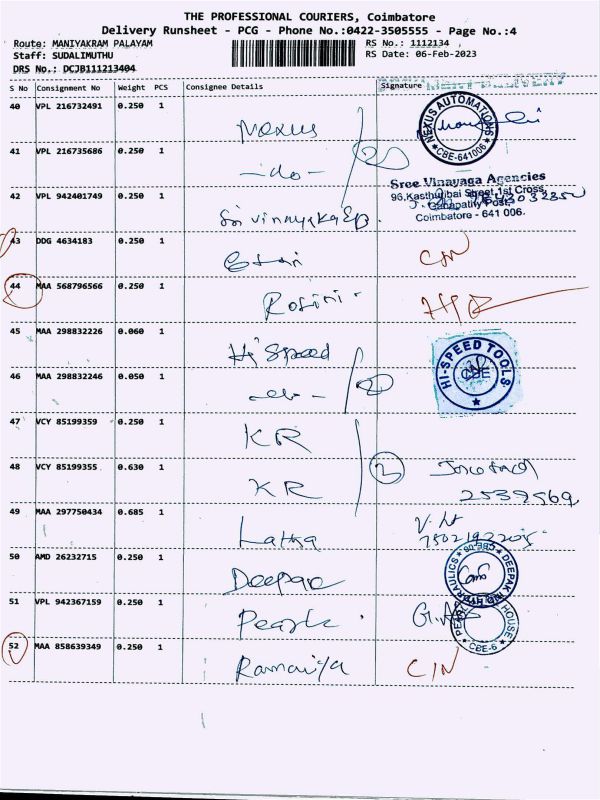 THE PROFESSIONAL COURIERS, Coimbatore
Delivery Runsheet - PCG - Phone No.:0422-3505555 - Page No.:4
Route: MANIYAKRAM PALAYAM
RS No.: 1112134
Staff: SUDALIMUTHU
RS Date: 06-Feb-2023
DRS No.: DCJB111213404
S No Consignment No Weight PCS Consignee Details Signature
40 VPL 216732491 0.250 1 Nexus
NEXUS AUTOMATIONS
CBE-641006
41 VPL 216735686 0.250 1 -do-
42 VPL 942401749 0.250 1 Sri Vinnyaka
Sree Vinayaga Agencies
96,Kasthuribai Street,1st Cross,
Ganapathy Post,
Coimbatore - 641 006.
43 DDG 4634183 0.250 1
44 MAA 568796566 0.250 1 Rosini
45 MAA 298832226 0.060 1 Hi Speed
HI-SPEED TOOLS
CBE
46 MAA 298832246 0.050 1 -do-
47 VCY 85199359 0.250 1 KR
48 VCY 85199355 0.630 1 KR
2539569
49 MAA 297750434 0.685 1 Latha
50 AMD 26232715 0.250 1 Deepac
DEEPAK HYDRAULICS
51 VPL 942367159 0.250 1 Pearls
PEARL HOUSE
CBE-6
52 MAA 858639349 0.250 1 Ramaiya C/N